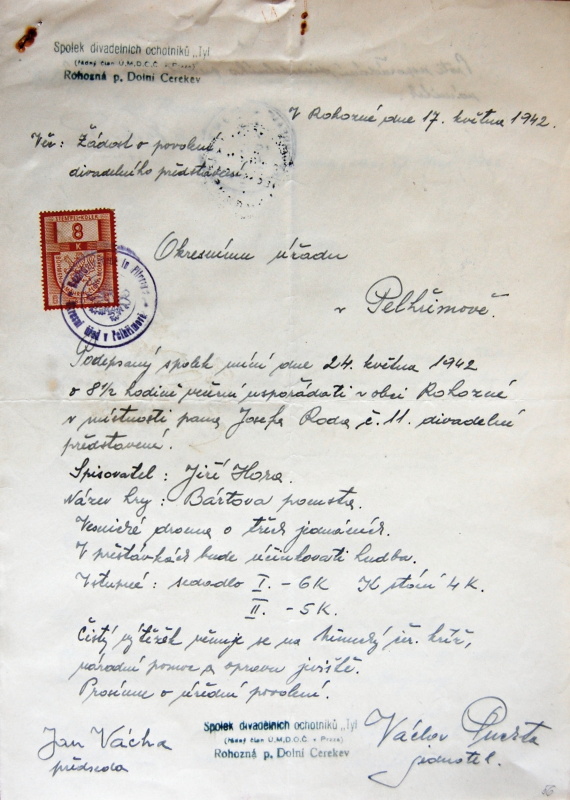 Spolek divadelních ochotníků „Tyl
(řádný člen Ú.M.D.O.Č. v Praze)
Rohozná p. Dolní Cerekev
V Rohozné dne 17. května 1942.
Věc: Žádost o povolení
divadelního představení
STEMPEL-KOLEK
8
K
úřad v Pelhřimově
Okresnímu úřadu
v Pelhřimově.
Podepsaný spolek míní dne 24. května 1942
o 8½ hodině večerní uspořádati v obci Rohozné
v místnosti pana Josefa Roda č. 11. divadelní
představení.
Spisovatel: Jiří Hora.
Název hry: Bártova pomsta.
Vesnické drama o třech jednáních.
V přestávkách bude účinkovati hudba.
Vstupné: sedadlo I. - 6K K stání 4K.
II. - 5K.
Čistý výtěžek věnuje se na Německý čer. kříž,
národní pomoc a opravu jeviště.
Prosíme o úřední povolení.
Jan Vácha
předseda
Spolek divadelních ochotníků „Tyl
(řádný člen Ú.M.D.O.Č. v Praze)
Rohozná p. Dolní Cerekev
Václav
jednatel.